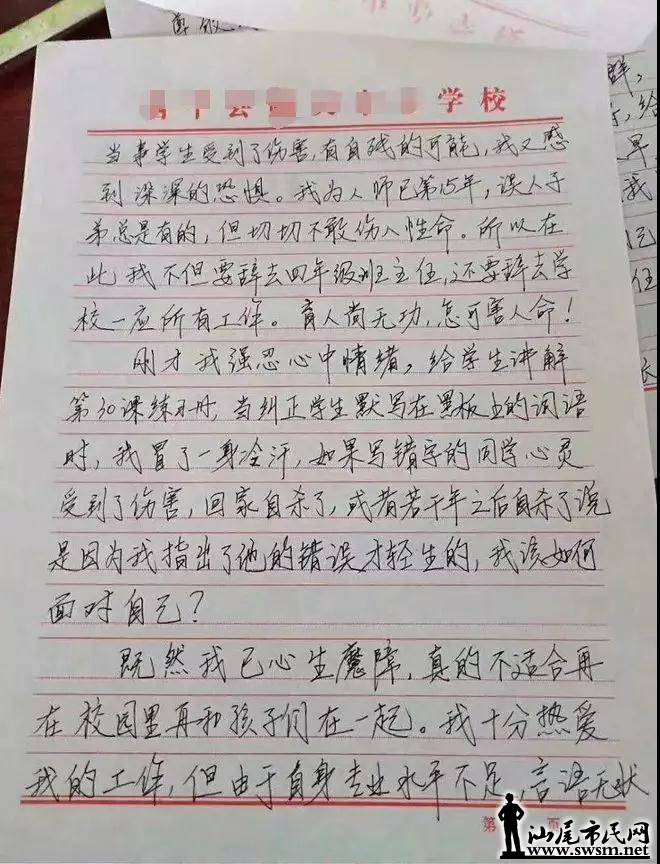 学校
当事学生受到了伤害,有自残的可能,我又感
到深深的恐惧。我为人师已第15年,误人子
弟总是有的,但切切不敢伤人性命。所以在
此我不但要辞去四年级班主任,还要辞去学
校一应所有工作。育人尚无功,怎可害人命!
刚才我强忍心中情绪,给学生讲解
第30课练习册,当纠正学生默写在黑板上的词语
时,我冒了一身冷汗,如果写错字的同学心灵
受到了伤害,回家自杀了,或者若干年之后自杀了说
是因为我指出了他的错误才轻生的,我该如何
面对自己?
既然我已心生魔障,真的不适合再
在校园里再和孩子们在一起。我十分热爱
我的工作,但由于自身专业水平不足,言语无状
第 页
汕尾市民网
www.swsm.net